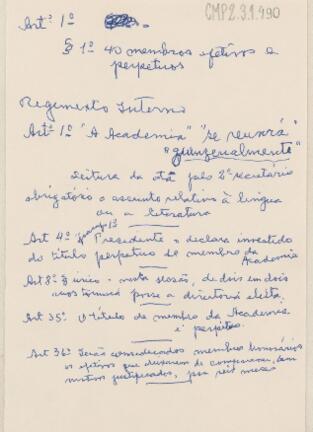 CMP2.3.1.990
Artº 1º
§ 1º 40 membros efetivos e
perpetuos
Regimento Interno
Artº 1º "A Academia" "se reunirá
"quinzenalmente"
Leitura da ata pelo 2º secretário
obrigatório o assunto relativo à lingua
ou a literatura
Art 4º Presidente o declara investido
do titulo perpetuo de membro da
Academia
Art 8º § único - nesta sessão, de dois em dois
anos tomará posse a diretoria eleita.
Art 35º O titulo de membro da Academia
é perpétuo.
Art 36º Serão considerados membros honorários
os efetivos que deixarem de comparecer, sem
motivos justificados, por seis meses